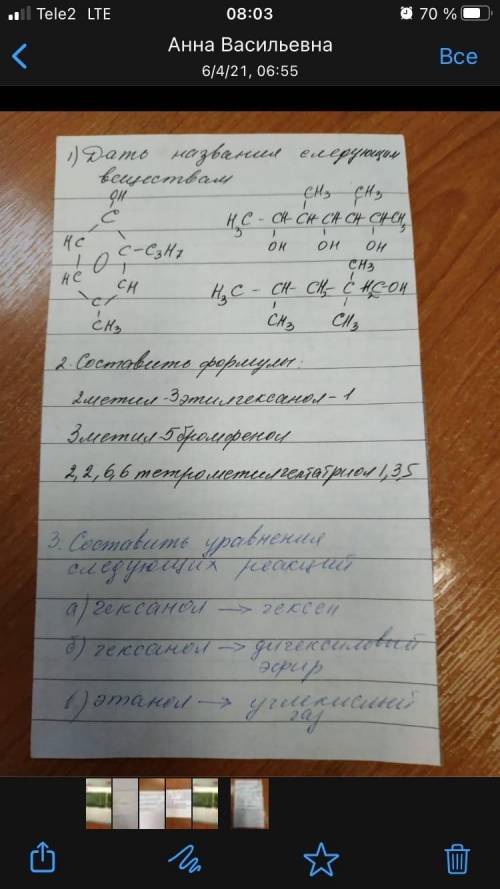 Tele2 LTE 08:03 70 %
Анна Васильевна
6/4/21, 06:55
Все
1) Дать названия следующим
веществам
OH
C
HC C - C3H7
HC CH
C
CH3
CH3 CH3
H3C - CH - CH - CH - CH - CH - CH3
OH OH OH
CH3
H3C - CH - CH2 - C - H2C - OH
CH3 CH3
2. Составить формулы:
2метил-3этилгексанол-1
3метил-5бромфенол
2,2,6,6 тетрометилгептатриол 1,3,5
3. Составить уравнения
следующих реакций
а) гексанол → гексен
б) гексанол → дигексиловый
эфир
в) этанол → углекислый
газ